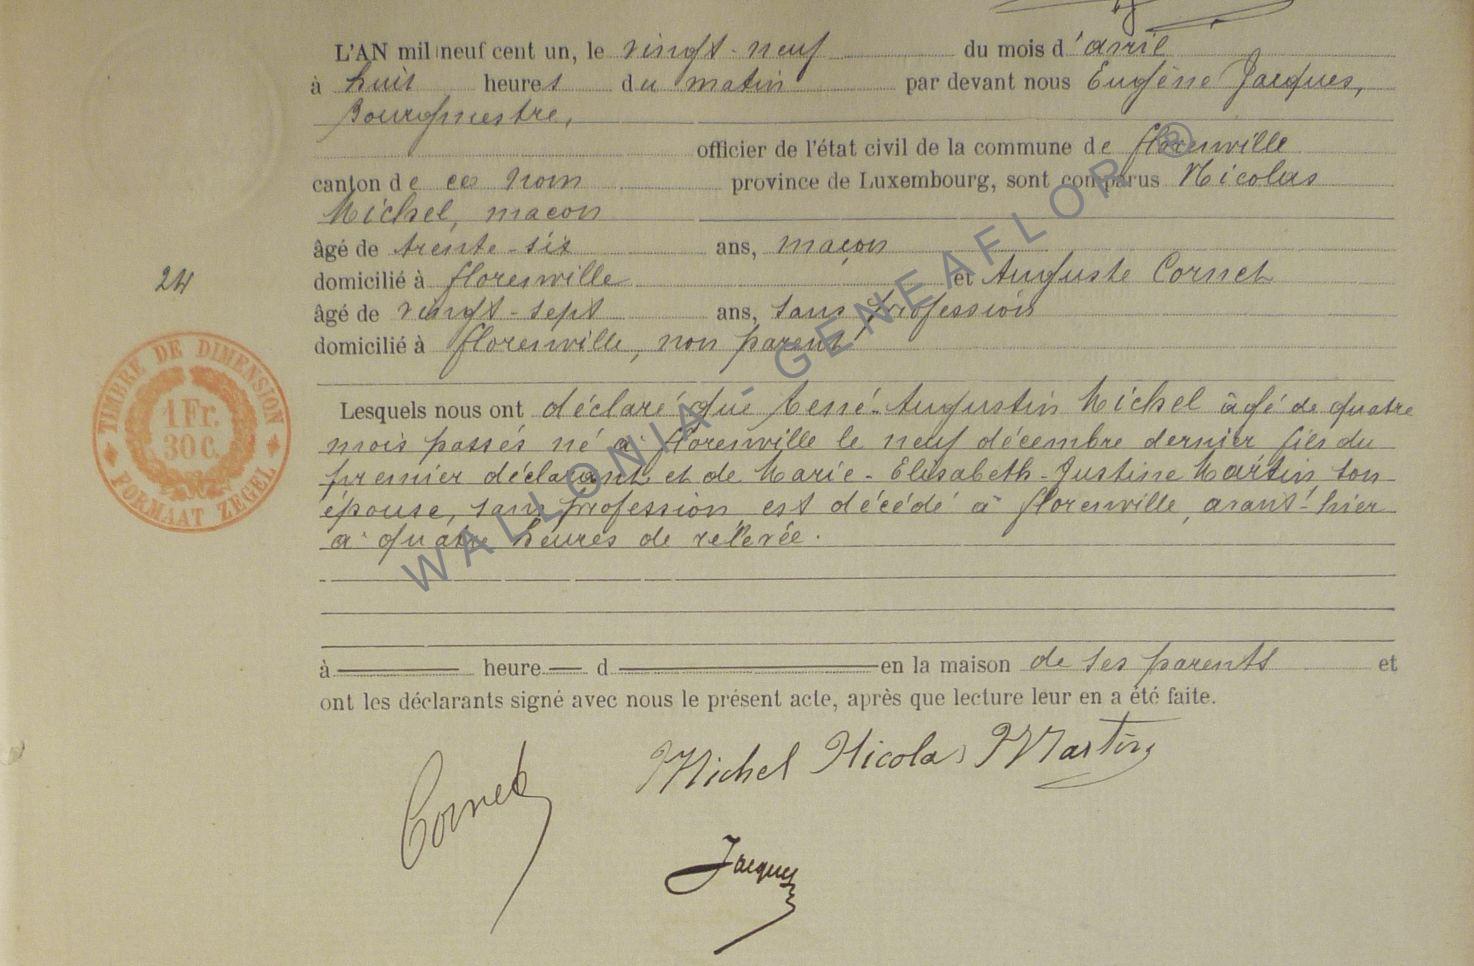 L'AN mil neuf cent un, le vingt-neuf du mois d'avril
à huit heures du matin par devant nous Eugène Jacques,
Bourgmestre,
officier de l'état civil de la commune de florenville
canton de ce nom province de Luxembourg, sont comparus Nicolas
Michel, maçon
âgé de trente-six ans, maçon
domicilié à florenville et Auguste Cornet
âgé de vingt-sept ans, sans profession
domicilié à florenville, non parent
Lesquels nous ont déclaré que René-Augustin Michel âgé de quatre
mois passés né à florenville le neuf décembre dernier fils du
premier déclarant et de Marie-Elisabeth-Justine Martin son
épouse, sans profession est décédé à florenville, avant-hier
à quatre heures de relevée.
à heure d en la maison de ses parents et
ont les déclarants signé avec nous le présent acte, après que lecture leur en a été faite.
Cornet Michel Nicolas Martin
Jacques
24
TIMBRE DE DIMENSION
1 Fr.
30 C.
FORMAAT ZEGEL
WALLONIA - GENEAFLOR ®